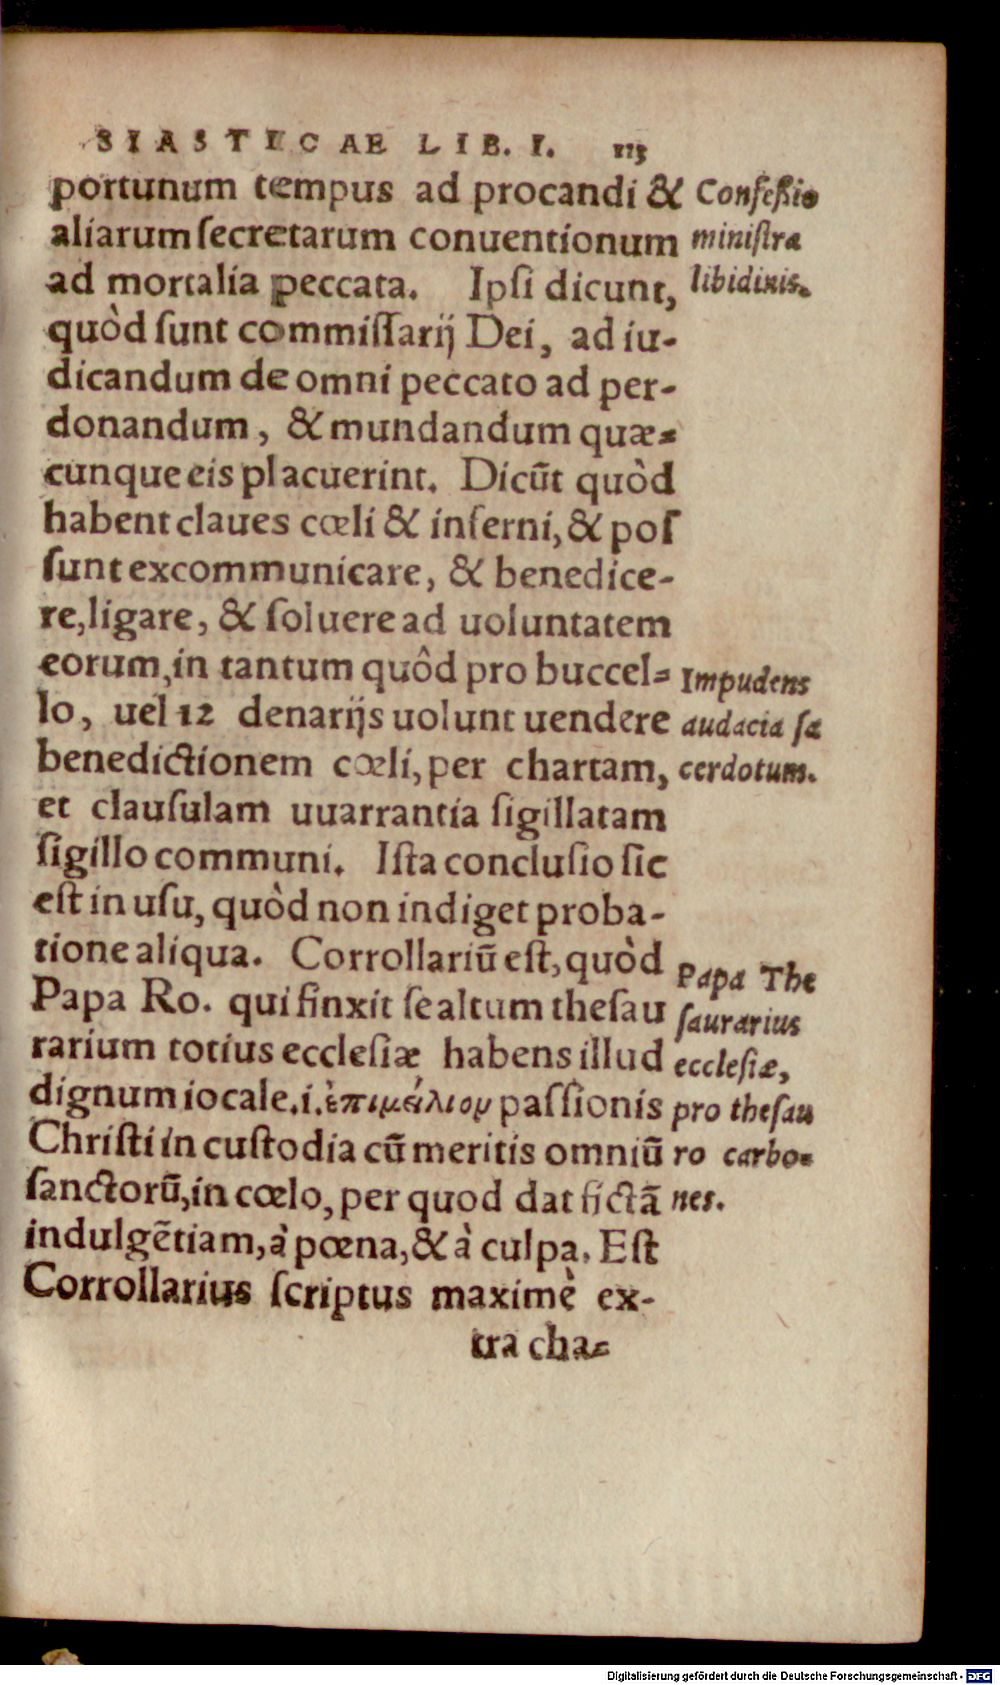 SIASTICAE LIB. I. 113
portunum tempus ad procandi &
aliarum ſecretarum conuentionum
ad mortalia peccata. Ipſi dicunt,
quòd ſunt commiſſarij Dei, ad iu-
dicandum de omni peccato ad per-
donandum, & mundandum quæ-
cunque eis placuerint. Dicūt quòd
habent claues cœli & inferni, & poſ
ſunt excommunicare, & benedice-
re, ligare, & ſoluere ad uoluntatem
eorum, in tantum quôd pro buccel-
lo, uel 12 denarijs uolunt uendere
benedictionem cœli, per chartam,
et clauſulam uuarrantia ſigillatam
ſigillo communi. Iſta concluſio ſic
eſt in uſu, quòd non indiget proba-
tione aliqua. Corrollariū eſt, quòd
Papa Ro. qui finxit ſe altum theſau
rarium totius eccleſiæ habens illud
dignum iocale .i. ἐπιμείλιον paſſionis
Chriſti in cuſtodia cū meritis omniū
ſanctorū, in cœlo, per quod dat fictā
indulgētiam, à pœna, & à culpa. Eſt
Corrollarius ſcriptus maximè ex-
tra cha-
Confeßio
miniſtra
libidinis.
Impudens
audacia ſa
cerdotum.
Papa The
ſaurarius
eccleſiæ,
pro theſau
ro carbo-
nes.
Digitalisierung gefördert durch die Deutsche Forschungsgemeinschaft - DFG